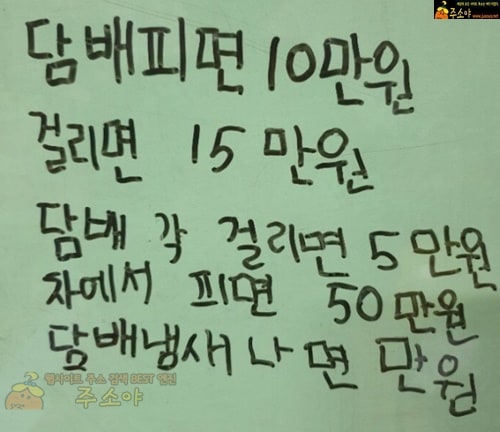 주소야
담배피면 10만원
걸리면 15만원
담배 각 걸리면 5만원
차에서 피면 50만원
담배냄새나면 만원
웹사이트 주소 검색 BEST 엔진
주소야